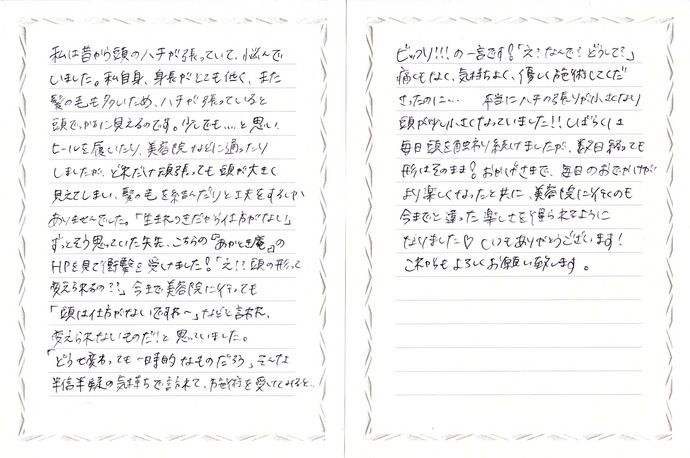 私は昔から頭のハチが張っていて、悩んで
いました。私自身、身長がとても低く、また
髪の毛も多いため、ハチが張っていると
頭でっかちに見えるのです。少しでも…と思い、
ヒールを履いたり、美容院などに通ったり
しましたが、どれだけ頑張っても頭が大きく
見えてしまい、髪の毛を結んだりと工夫をするしか
ありませんでした。「生まれつきだから仕方がない」
ずっとそう思っていた矢先、こちらの『あかとき庵』の
HPを見て衝撃を受けました!「え!?頭の形って
変えられるの??」今まで美容院に行っても
「頭は仕方がないですね〜」などと言われ、
変えられないものだ!と思っていました。
「どうせ変わっても一時的なものだろう」そんな
半信半疑の気持ちで訪れて、施術を受けてみると、
ビックリ!!!の一言です!「え?なんで?どうして?」
痛くもなく、気持ちよく、優しく施術してくだ
さったのに… 本当にハチの張りが小さくなり
頭が小さくなっていました!!しばらくは
毎日頭を触わり続けましたが、数日経っても
形はそのまま!おかげさまで、毎日のおでかけが
より楽しくなったと共に、美容院に行くのも
今までと違った楽しさを得られるように
なりました♡いつもありがとうございます!
これからもよろしくお願い致します。